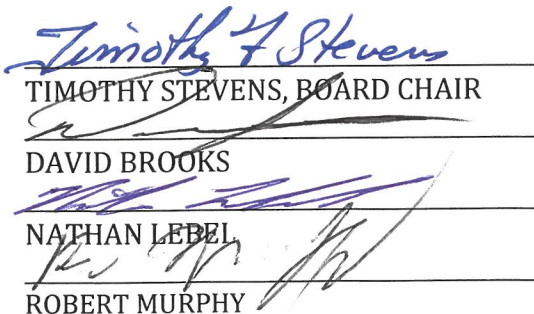 Timothy F Stevens
TIMOTHY STEVENS, BOARD CHAIR
DAVID BROOKS
NATHAN LEBEL
ROBERT MURPHY